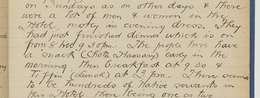 on Sundays as on other days & there
were a lot of men & women in the
Hotel mostly in evening dress. They
had just finished dinner which is on
from 8 to 9.30 p.m. The people here have
a snack (Chota Hazari) early in the
morning then breakfast at 9.30 &
Tiffin (dinner) at 2 p.m. There seems
to be hundreds of Native servants in
this Hotel there being one or two